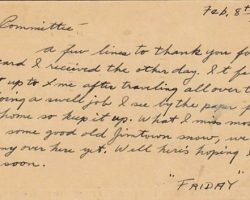 Feb. 8th
Committee -
A few lines to thank you fo
card I received the other day. It f
t up to me after traveling all over t
oing a swell job I see by the paper f
home so keep it up. What I miss mo
some good old Jimtown snow, we
ny over here yet. Well here's hoping
soon.
"FRIDAY"